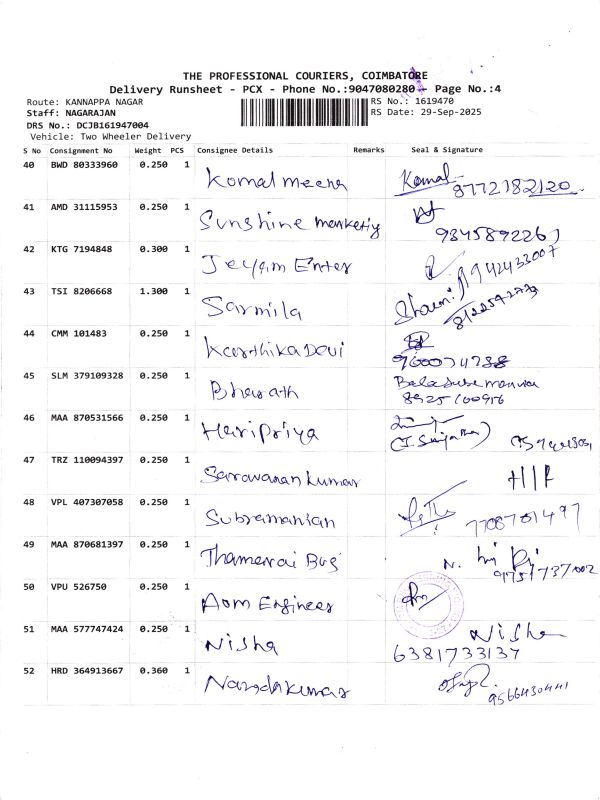 THE PROFESSIONAL COURIERS, COIMBATORE
Delivery Runsheet - PCX - Phone No.:9047080280 - Page No.:4
Route: KANNAPPA NAGAR
RS No.: 1619470
Staff: NAGARAJAN
RS Date: 29-Sep-2025
DRS No.: DCJB161947004
Vehicle: Two Wheeler Delivery
S No Consignment No Weight PCS Consignee Details Remarks Seal & Signature
40 BWD 80333960 0.250 1 Komal meena Komal 8772182120
41 AMD 31115953 0.250 1 Sunshine marketing
42 KTG 7194848 0.300 1 Jeyam Enter
43 TSI 8206668 1.300 1 Sarmila
44 CMM 101483 0.250 1 Karthika Devi 9600074738
45 SLM 379109328 0.250 1 Bharath
8925100916
46 MAA 870531566 0.250 1 Haripriya
47 TRZ 110094397 0.250 1 Sarawanan kumar
48 VPL 407307058 0.250 1 Subramanian 7708701497
49 MAA 870681397 0.250 1 Thamarai 9751737002
50 VPU 526750 0.250 1 Aom Engineer
51 MAA 577747424 0.250 1 Nisha Nisha
6381733137
52 HRD 364913667 0.360 1 Nandakumar
9566430441